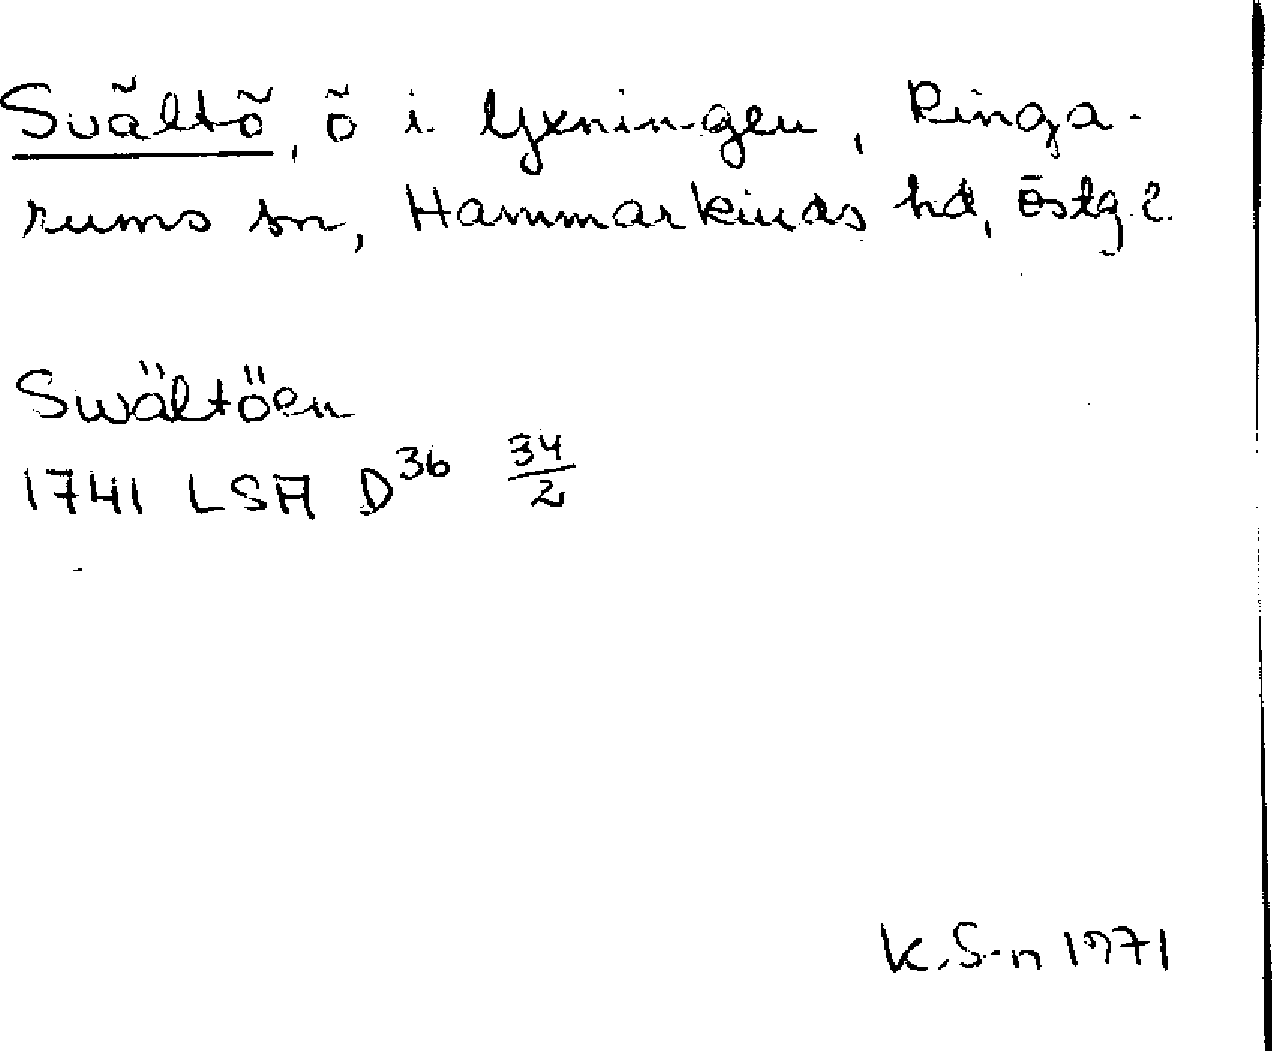 Svältö, ö i Yxningen, Ringa-
rums sn, Hammarkinds hd, Östg. l.
Swältöen
1741 LSA D36 34/2
K. S-n 1971